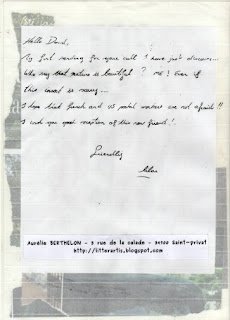 Hello David,
My first sending for your call I have just discover...
Who say that nature is beautiful? ME! Even if
this is ...
I hope that french and US postal workers are not afraid!!
I wish you good reception of this new friend!.
Friendly
Aurélie BERTHELON - 3 rue de la calade - 34700 Saint-privat
http://litterartis.blogspot.com